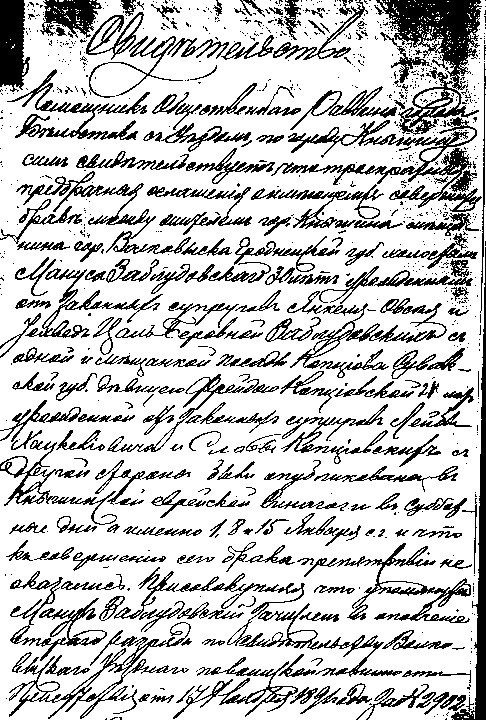 Свидѣтельство
Помощникъ Общественнаго Раввина города
Бѣлостока съ уѣздомъ, по городу Кнышину
симъ свидѣтельствуетъ, что троекратныя
предбрачныя оглашенія о имѣющемъ совершиться
бракѣ между жителемъ гор. Кнышина мѣщани-
нина гор. Волковыска Гродненской губ. холостымъ
Манусъ Заблудовскимъ лѣтъ, рожденнымъ
отъ законныхъ супруговъ Янкеля-Овсея и
Беровной Заблудовскихъ съ
одной и мѣщанкой посада Копціова Сувалк-
ской губ. дѣвицею Фрейдою Копціовской 21 лѣтъ
рожденной отъ законныхъ супруговъ Лейбы
Хацкелевича и Копціовскихъ съ
другой стороны были опубликованы въ
Кнышинской еврейской синагоги въ суббот-
ные дни а именно 1, 8 и 15 Января с.г. и что
къ совершенію сего брака препятствій не
оказалось. Присовокупляя что упомянутый
Манусъ Заблудовскій зачисленъ въ ополченіе
второго разряда по свидѣтельству Волко-
выскаго Уѣзднаго по воинской повинности
Присутствія отъ 17 Ноября 1891 года за № 2902.